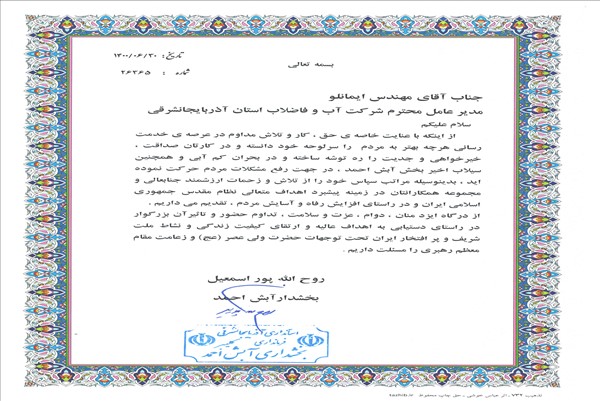 بسمه تعالی
تاریخ: ۱۴۰۰/۰۶/۳۰
شماره : ۲۶۲۶۵
جناب آقای مهندس ایمانلو
مدیر عامل محترم شرکت آب و فاضلاب استان آذربایجانشرقی
سلام علیکم
از اینکه با عنایت خاصه ی حق ، کار و تلاش مداوم در عرصه ی خدمت
رسانی هرچه بهتر به مردم را سرلوحه خود دانسته و در کارتان صداقت ،
خیرخواهی و جدیت را ره توشه ساخته و در بحران کم آبی و همچنین
سیلاب اخیر بخش آبش احمد ، در جهت رفع مشکلات مردم حرکت نموده
اید ، بدینوسیله مراتب سپاس خود را از تلاش و زحمات ارزشمند جنابعالی و
مجموعه همکارانتان در زمینه پیشبرد اهداف متعالی نظام مقدس جمهوری
اسلامی ایران و در راستای افزایش رفاه و آسایش مردم ، تقدیم می داریم .
از درگاه ایزد منان ، دوام ، عزت و سلامت ، تداوم حضور و تاثیرآن بزرگوار
در راستای دستیابی به اهداف عالیه و ارتقای کیفیت زندگی و نشاط ملت
شریف و پر افتخار ایران تحت توجهات حضرت ولی عصر (عج) و زعامت مقام
معظم رهبری را مسئلت داریم .
روح الله پور اسمعیل
بخشدارآبش احمد
استانداری آذربایجانشرقی
فرمانداری کلیبر
بخشداری آبش احمد